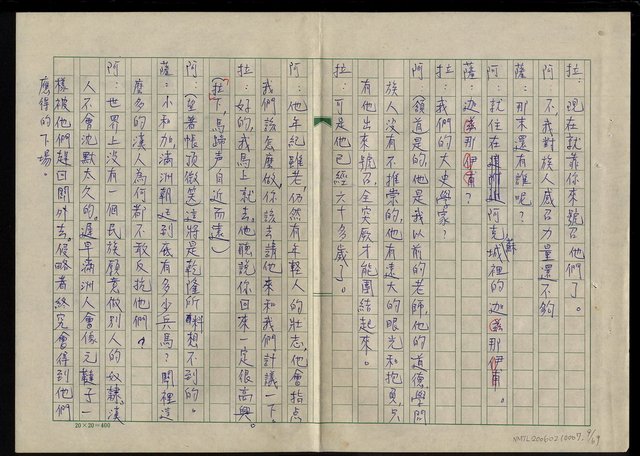 拉：現在就靠你來號召他們了。
阿：不，我對族人感召力量還不夠
薩：那末還有誰呢？
阿：就住在阿克蘇城裡的迦茲那伊甫。
薩：迦茲那伊甫？
拉：我們的大史學家？
阿：（領道是的，他是我以前的老師，他的道德，學問
族人沒有不推崇的，他有遠大的眼光和抱負，只
有他出來號召，全突厥才能團結起來。
拉：可是他已經六十多歲了。
阿：他年紀雖老，仍然有年輕人的壯志，他會指点
我們該怎麼做，你該去請他來和我們計議一下。
拉：好的，我馬上就去，他聽說你回來一定很高興。
（拉下，馬蹄声自近而遠）
阿：（望着帳頂微笑）這將是乾隆所料想不到的。
薩：小和加，滿洲朝廷到底有多少兵馬？関裡這
麼多的漢人為何都不敢反抗他們？
阿：世界上沒有一個民族願意做別人的奴隸，漢
人不會沈默太久的，遲早滿洲人會像元韃子一
樣被他們趕回関外去，侵略者終究會得到他們
應得的下場。
20×20=400
NMTL20060210007
9/69